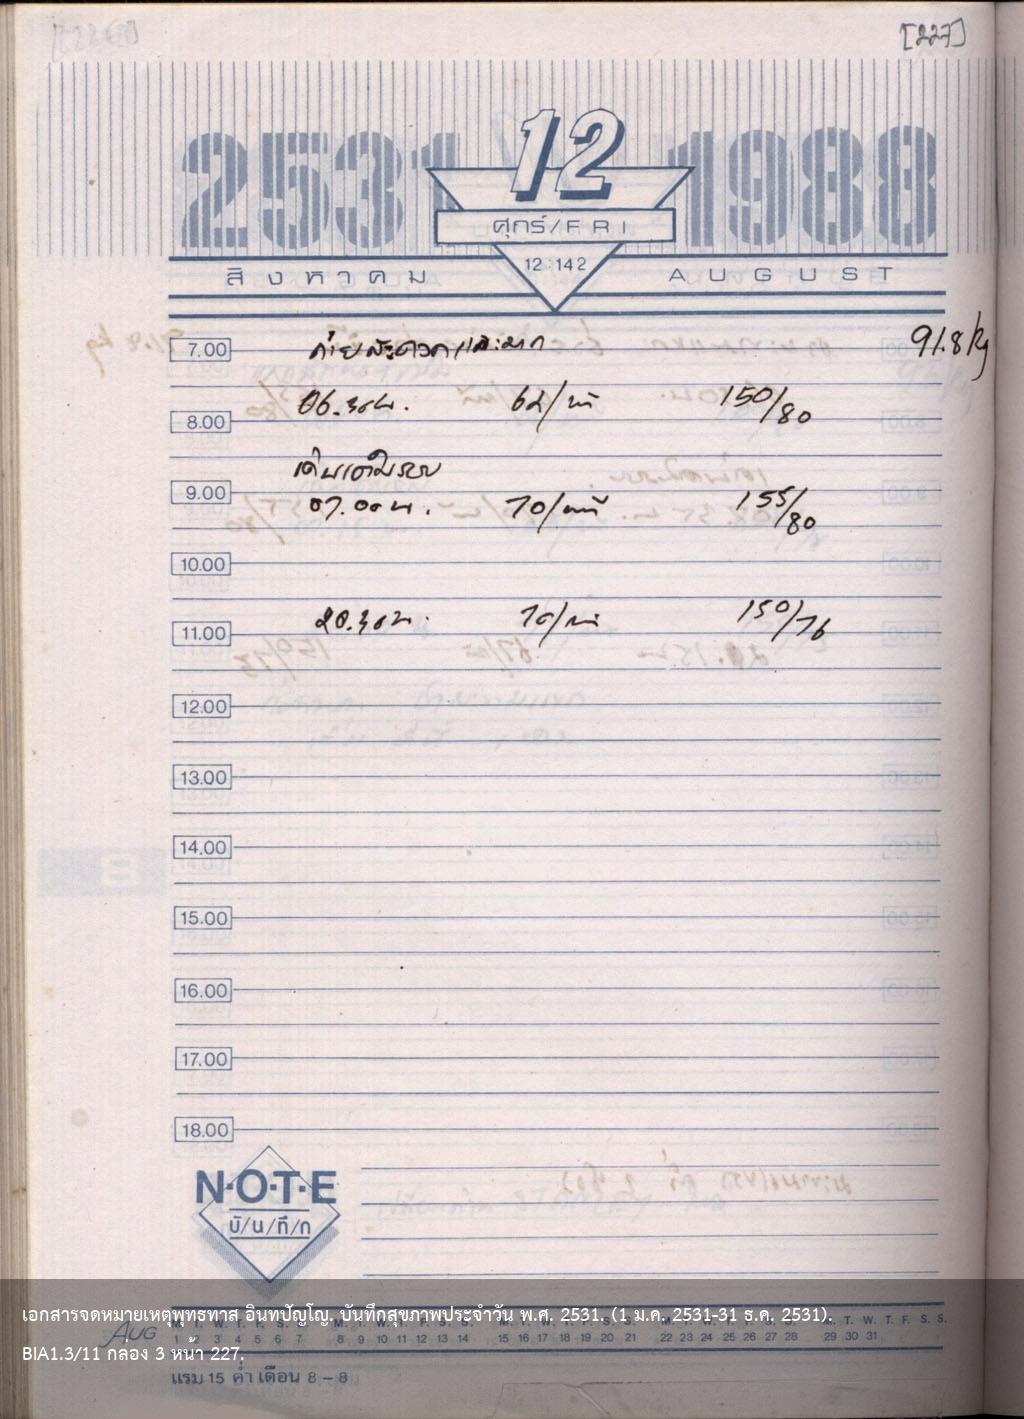 [227]
2531 1988
12
ศุกร์/FRI
12:142
สิงหาคม AUGUST
7.00 ถ่ายสะดวกและมาก 91.8 kg
06.30น. 62/นาที 150/80
8.00
เดินเต็มรอบ
9.00 07.00น. 70/นาที 155/80
10.00
20.30น. 70/นาที 150/76
11.00
12.00
13.00
14.00
15.00
16.00
17.00
18.00
N·O·T·E
บั/น/ทึ/ก
เอกสารจดหมายเหตุพุทธทาส อินทปัญโญ. บันทึกสุขภาพประจำวัน พ.ศ. 2531. (1 ม.ค. 2531-31 ธ.ค. 2531).
AUG M. T. W. T. F. S. S. M. T. W. T. F. S. S. M. T. W. T. F. S. S. M. T. W. T. F. S. S. M. T. W. T. F. S. S.
1 2 3 4 5 6 7 8 9 10 11 12 13 14 15 16 17 18 19 20 21 22 23 24 25 26 27 28 29 30 31
BIA1.3/11 กล่อง 3 หน้า 227.
แรม 15 ค่ำ เดือน 8 – 8